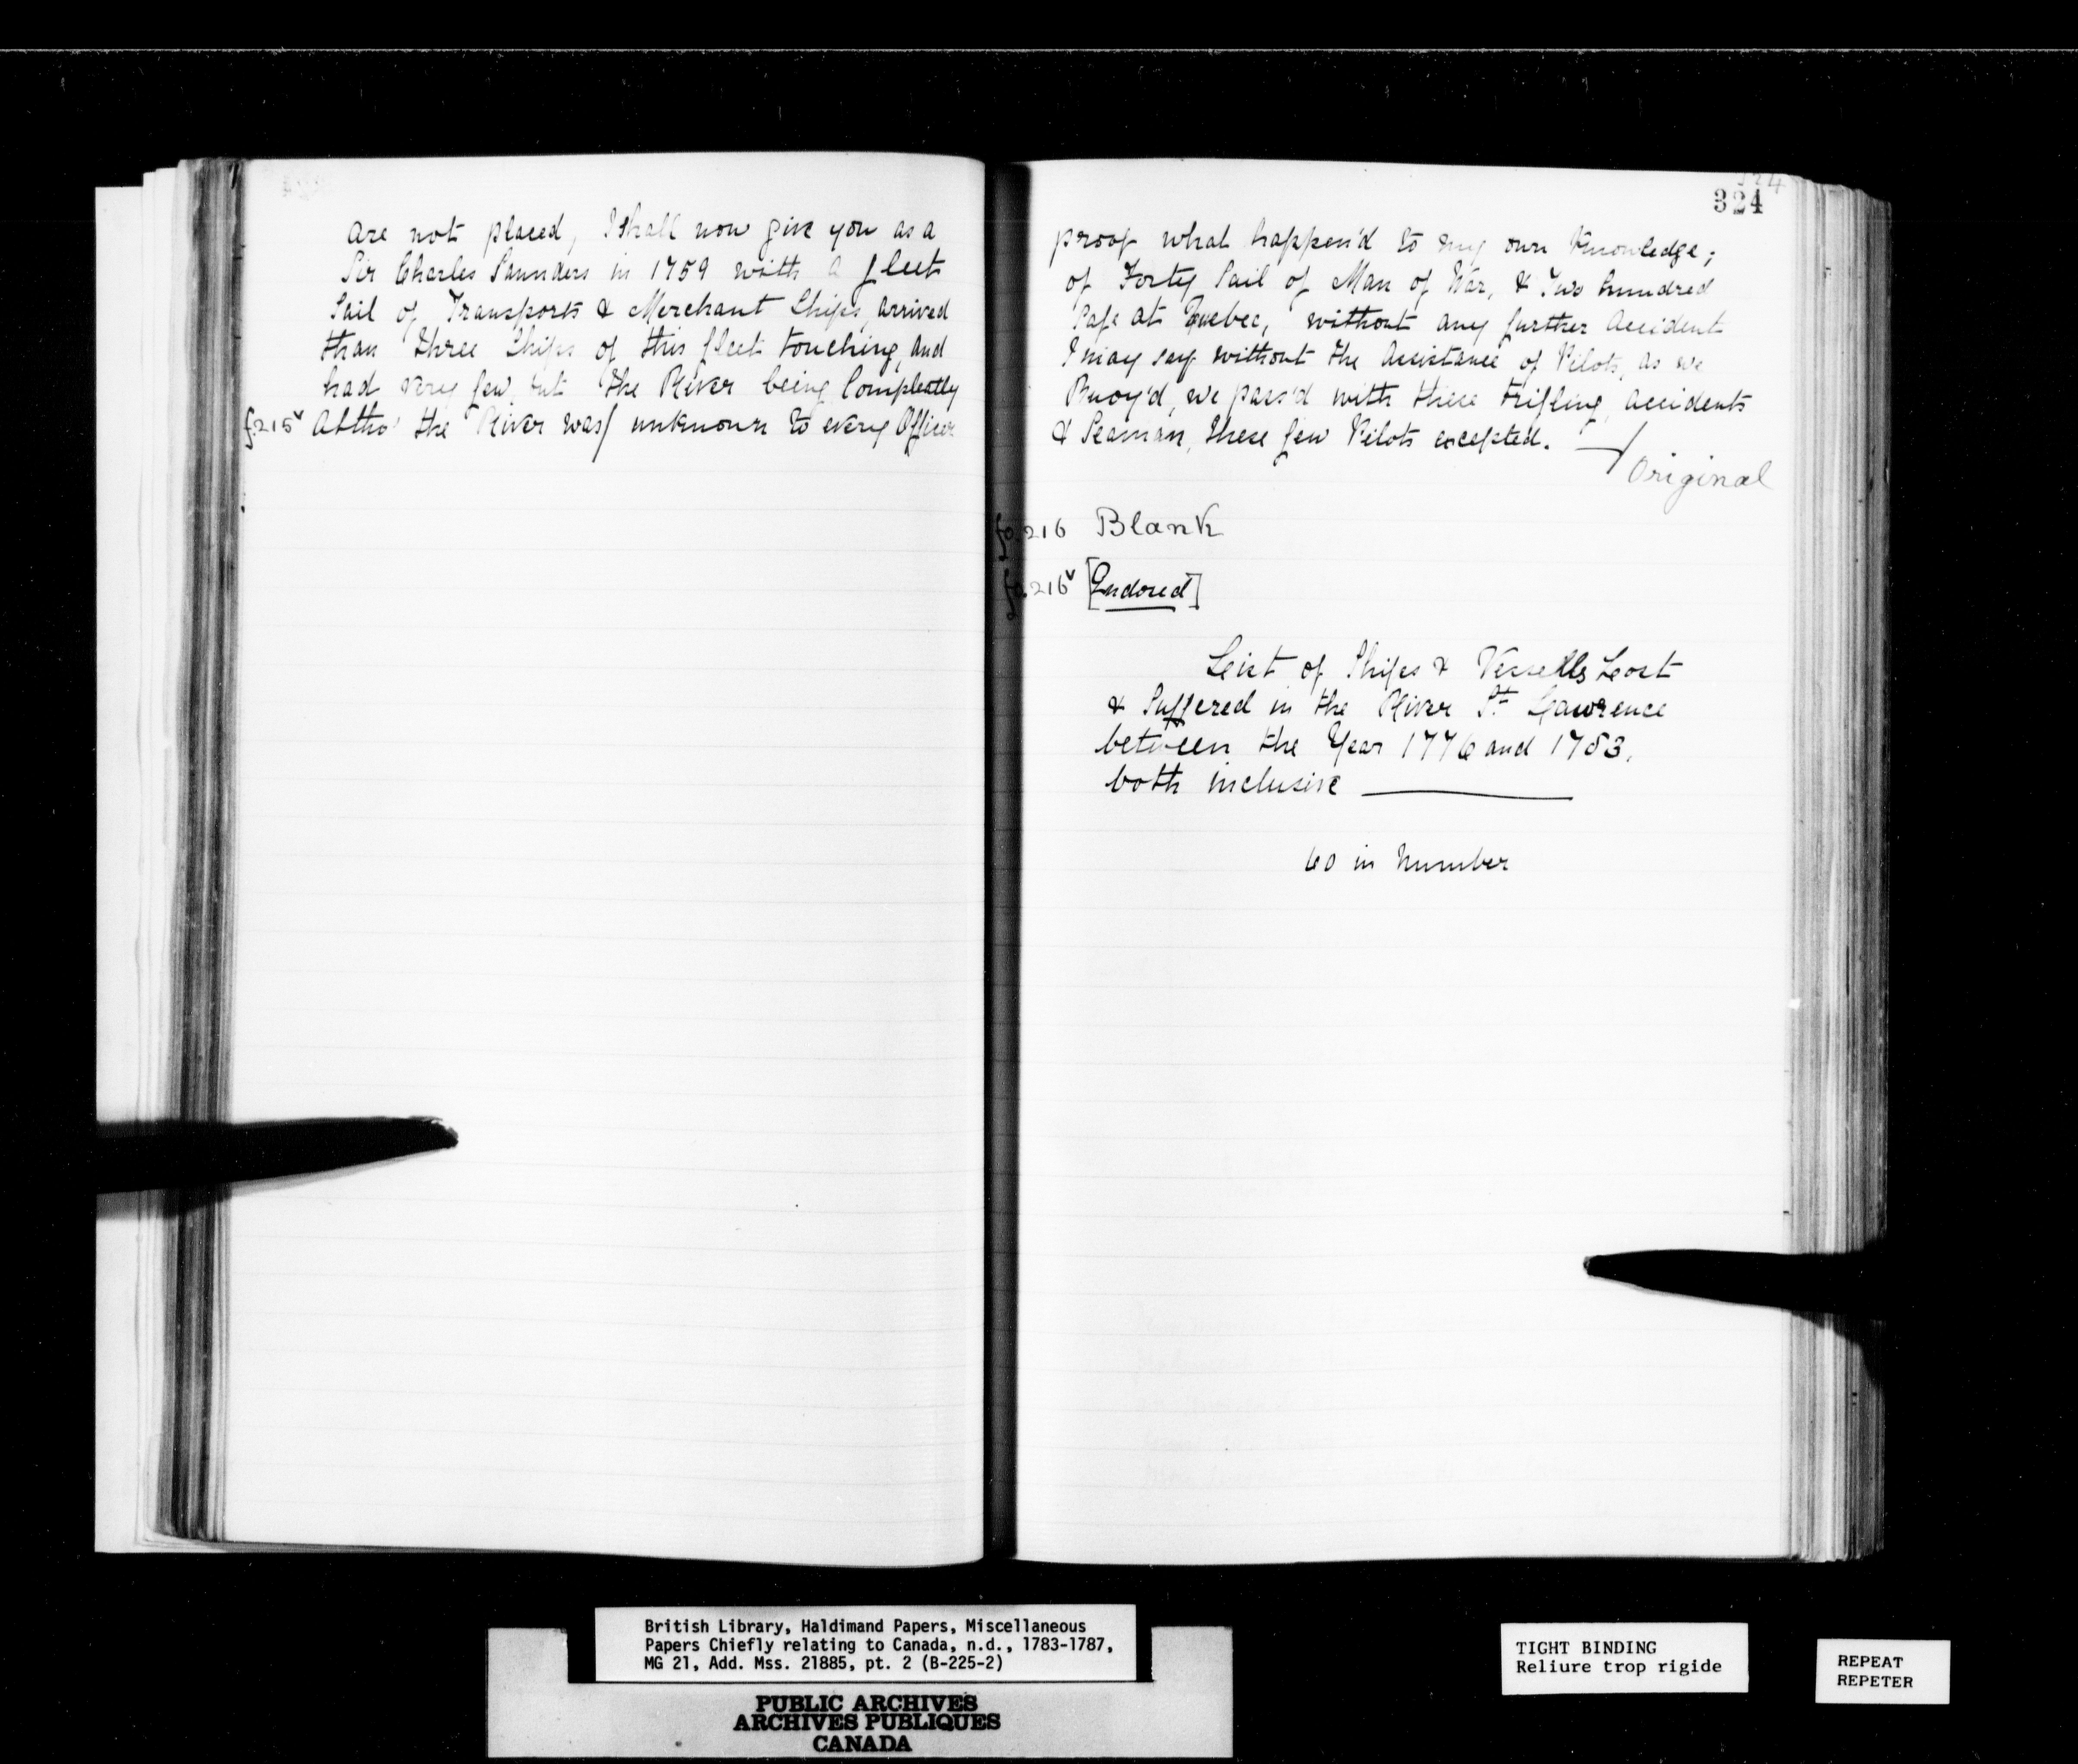 324
324
are not placed, I shall now give you as a proof what happen'd to my own Knowledge;
Sir Charles Saunders in 1759 with a fleet of Forty Sail of Man of War, & Two hundred
Sail of Transports & Merchant Ships, arrived Safe at Quebec, without any further accident
than three Ships of this fleet touching, and I may say without the Assistance of Pilots, as we
had very few, but the River being Compleatly Buoy'd, we pass'd with these trifling accidents
f.215v Altho' the River was/ unknown to every Officer & Seaman, these few Pilots excepted.
Original
fo. 216 Blank
fo. 216v [Endorsed]
List of Ships & Vessells Lost
& Suffered in the River St Lawrence
between the Year 1776 and 1783.
both inclusive
60 in Number
British Library, Haldimand Papers, Miscellaneous
Papers Chiefly relating to Canada, n.d., 1783-1787,
MG 21, Add. Mss. 21885, pt. 2 (B-225-2)
PUBLIC ARCHIVES
ARCHIVES PUBLIQUES
CANADA
TIGHT BINDING
Reliure trop rigide
REPEAT
REPETER